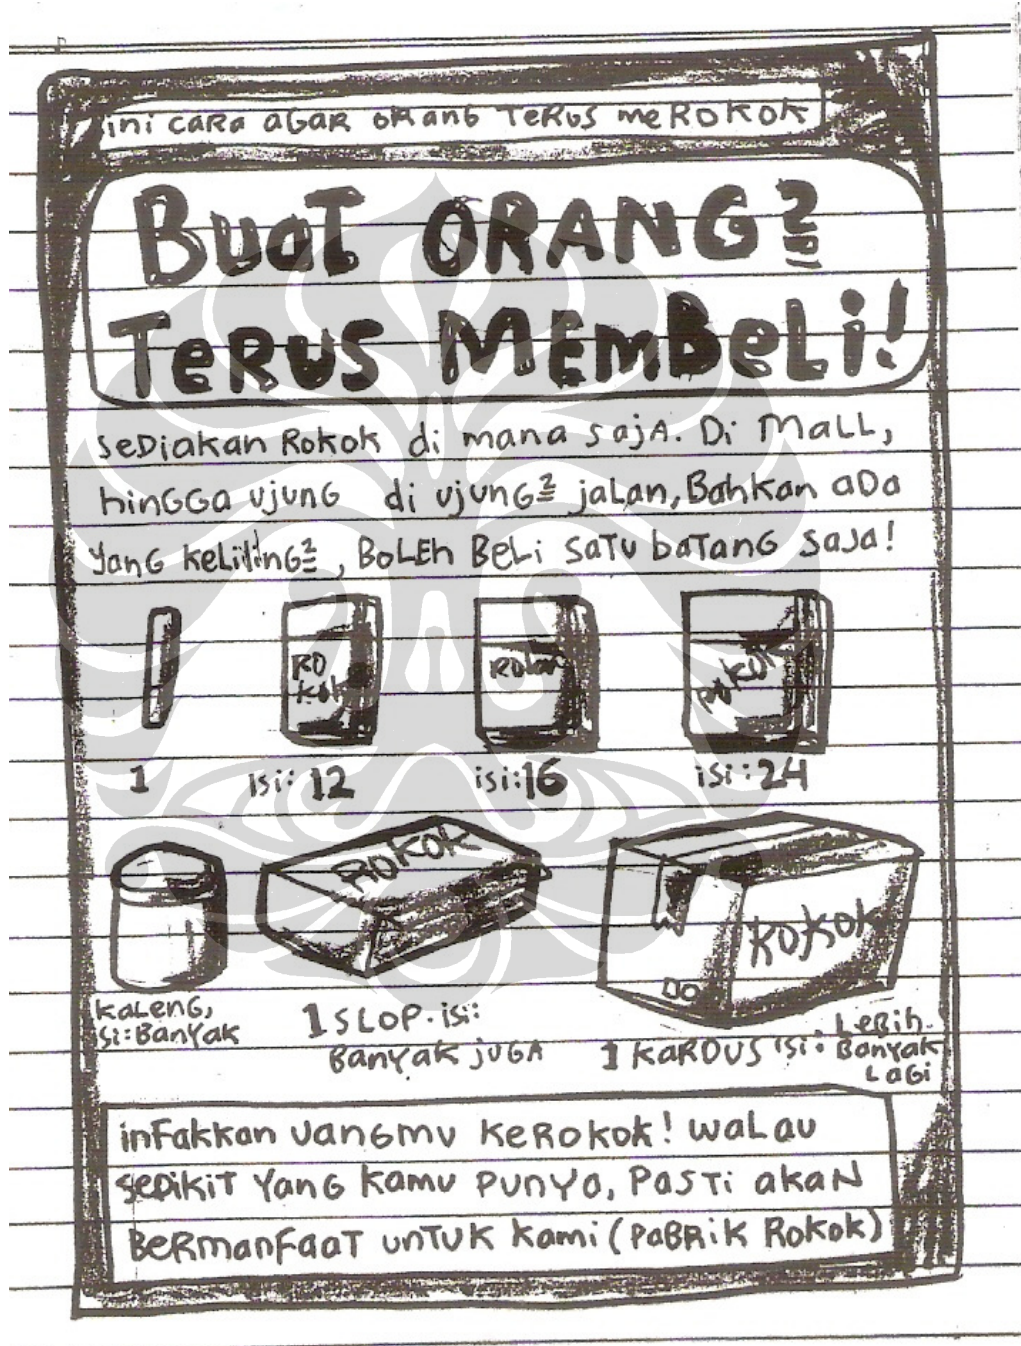 ini cara agar orang terus merokok
Buat orang²
terus membeli!
sediakan rokok di mana saja. Di mall,
hingga ujung di ujung² jalan, Bahkan ada
yang keliling², boleh beli satu batang saja!
Rokok
Rokok
Rokok
1
isi: 12
isi: 16
isi: 24
Rokok
Rokok
Do
kaleng,
isi: Banyak
1 slop. isi:
Banyak juga
1 kardus isi: Lebih
Banyak
Lagi
infakkan uangmu kerokok! walau
sedikit yang kamu punya, pasti akan
bermanfaat untuk kami (pabrik rokok)